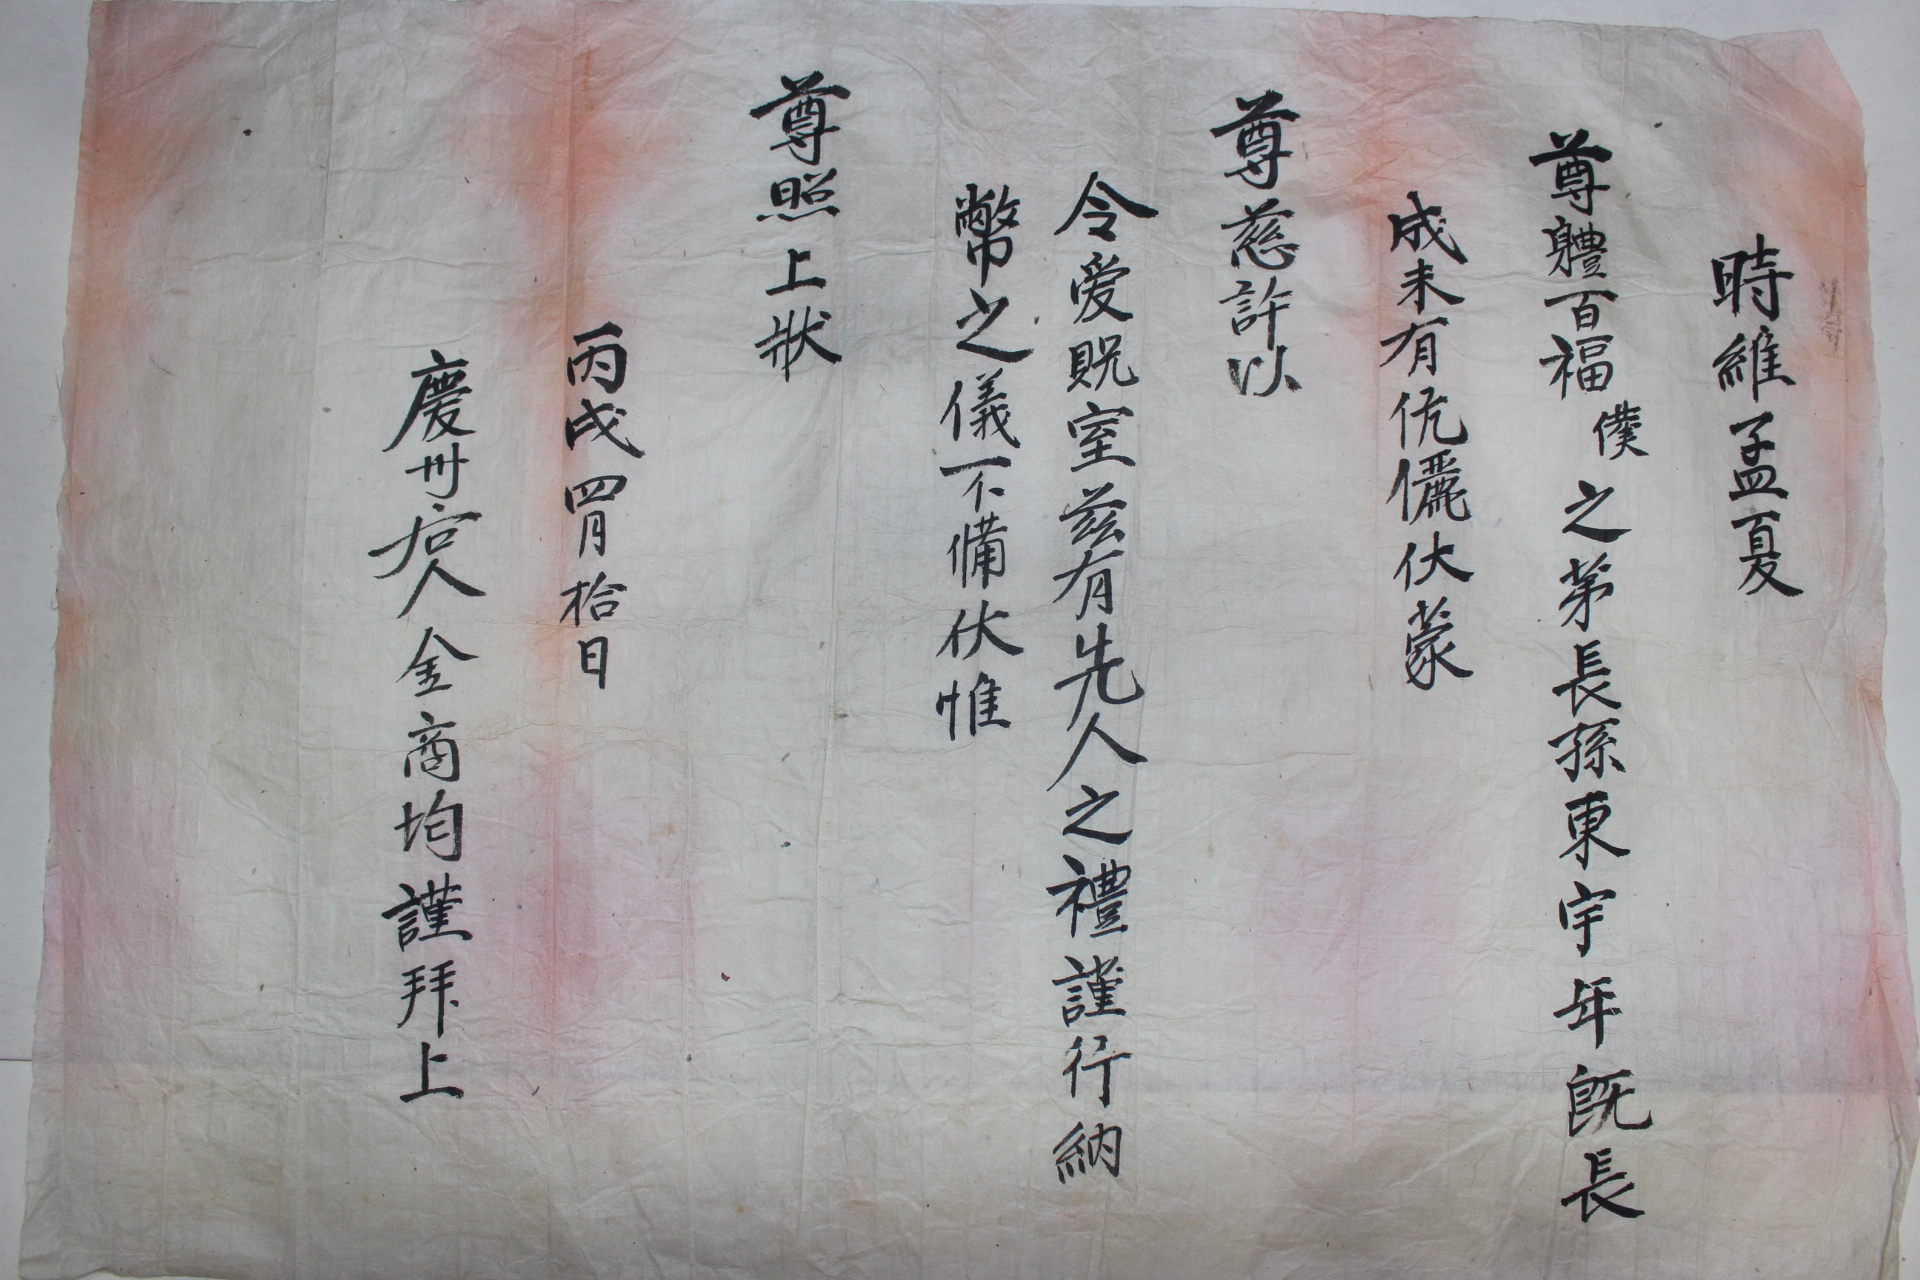 時維孟夏
尊體百福僕之第長孫東宇年既長
成未有伉儷伏蒙
尊慈許以
令爱貺室玆有先人之禮謹行納
幣之儀不備伏惟
尊照上狀
丙戌四月拾日
慶州后人金商均謹拜上